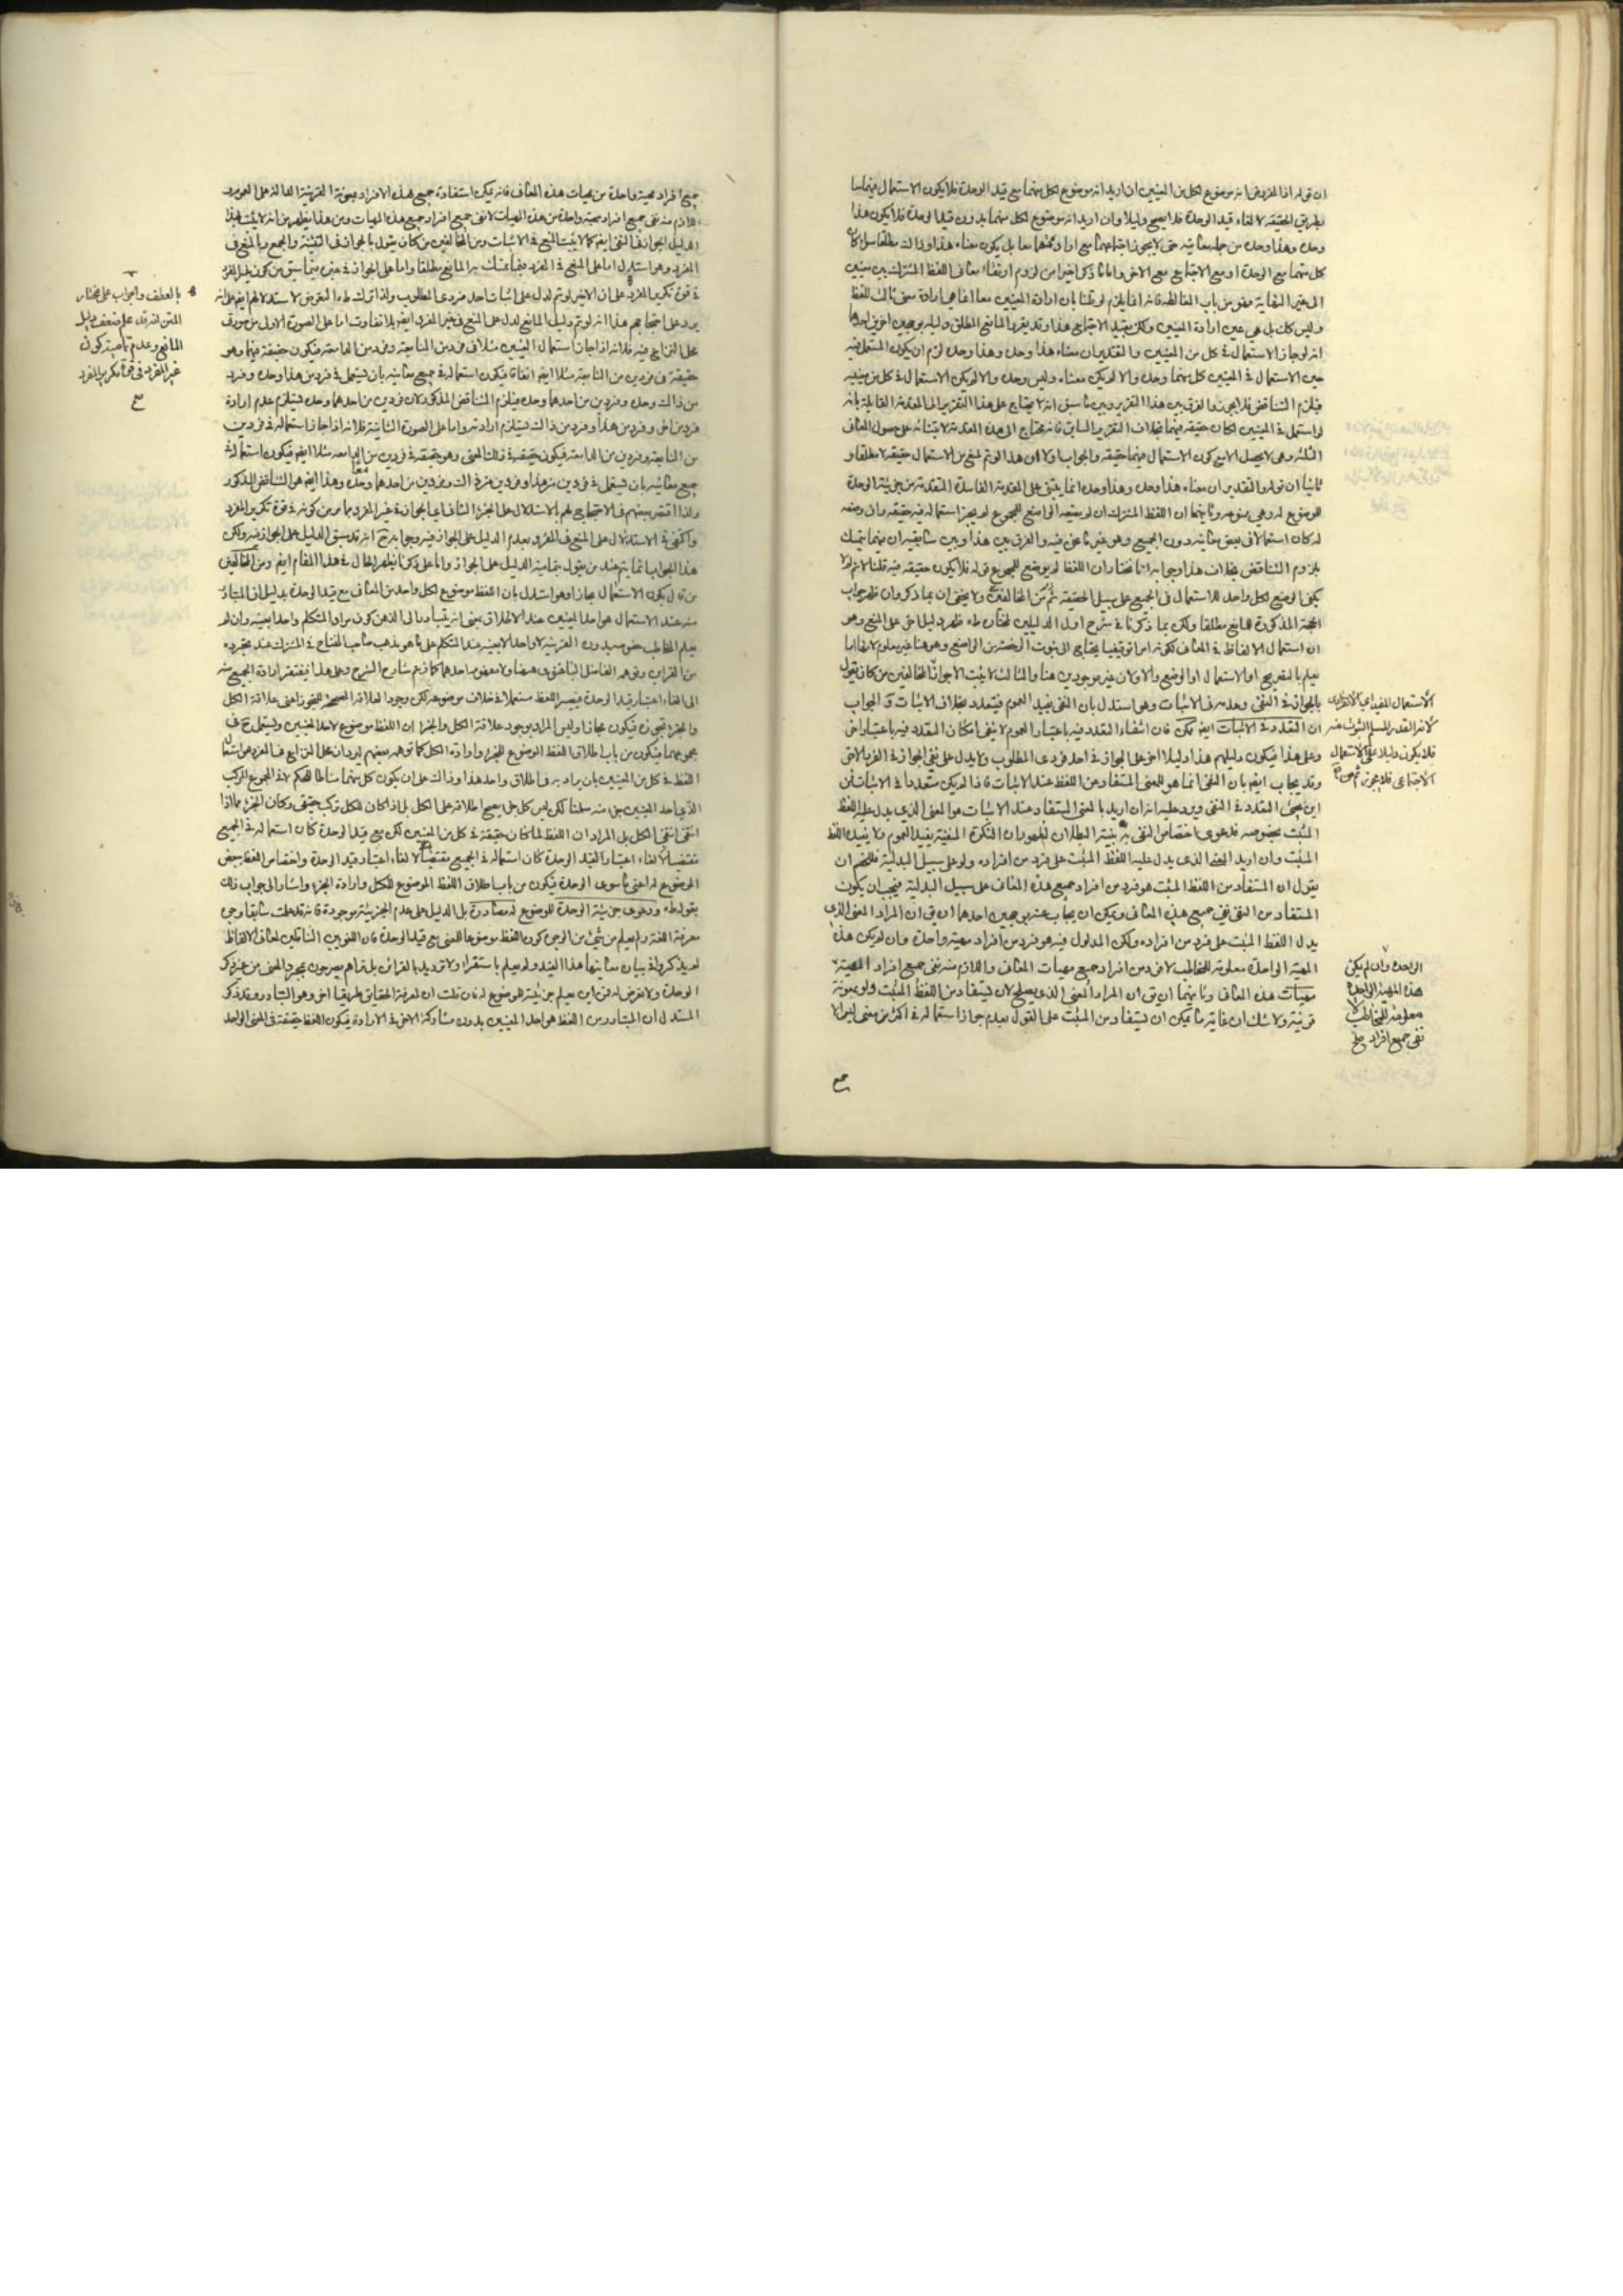 ان قوله اذا المفروض انه موضوع لكل من المعنيين ان اريد انه موضوع لكل منهما مع قيد الوحدة فلا يكون الاستعمال فيهما
بطريق الحقيقة لالغاء قيد الوحدة فلا يصح دليلا وان اريد انه موضوع لكل منهما بدون قيد الوحدة فلا يكون هذا
وحده وهذا وحده من جملة معانيه حتى لا يجوز اجتماعهما مع ارادتهما معا بل يكون معناه هذا وذاك مطلقا سواء كان
كل منهما مع الوحدة او مع الاجتماع مع الاخر واما ما ذكر اخيرا من لزوم ارتفاع معاني اللفظ المشترك بين معنيين
الى غير النهاية فهو من باب المغالطة فانه انما يلزم لو قلنا بان ارادة المعنيين معا انما هي ارادة معنى ثالث للفظ
وليس كان بل هي عين ارادة المعنيين ولكن بقيد الاجتماع هذا وقد يقرر المانع المطلق دليله بوجهين اخرين احدهما
انه لو جاز الاستعمال في كل من المعنيين والتقدير ان معناه هذا وحده وهذا وحده لزم ان يكون المستعمل فيه
حين الاستعمال في المعنيين كل منهما وحده والا لم يكن معناه وليس وحده والا لم يكن الاستعمال في كل من معنييه
فيلزم التناقض فلا يجوز والفرق بين هذا التقرير وبين ما سبق انه لا يحتاج على هذا التقرير الى المقدمة القائلة بانه
لو استعمل في المعنيين لكان حقيقة فيهما بخلاف التقرير السابق فانه محتاج الى هذه المقدمة لابتنائه على حصول المعاني
الثلثة وهي لا يحصل الا مع كون الاستعمال فيهما حقيقة والجواب اولا ان هذا لو تم لمنع من الاستعمال حقيقة لا مطلقا و
ثانيا ان قوله والتقدير ان معناه هذا وحده وهذا وحده انما يبتنى على المقدمة الفاسدة المتقدمة من جزئية الوحدة
للموضوع له وهي ممنوعة وثانيهما ان اللفظ المشترك ان لم يضعه الواضع للمجموع لم يجز استعماله فيه حقيقة وان وضعه
له كان استعمالا في بعض معانيه دون الجميع وهو غير ما نحن فيه والفرق بين هذا وبين سابقيه ان فيهما يتمسك
بلزوم التناقض بخلاف هذا وجوابه انا نختار ان اللفظ لم يوضع للمجموع قوله فلا يكون حقيقة فيه قلنا لا نم لم لا
يكفي الوضع لكل واحد للاستعمال في الجميع على سبيل الحقيقة ثم من المخالفين ولا يخفى ان بما ذكر وان ظهر جواب
الحجة المذكورة للمانع مطلقا ولكن بما ذكرنا في شرح اول الدليلين لمختاره طاه ظهر دليل اخر على المنع وهو
ان استعمال الالفاظ في المعاني لكونه امرا توقيفيا يحتاج الى ثبوت الرخصة من الواضع وهو هنا غير معلوم لانه انما
يعلم بالتصريح او الاستعمال او الوضع والاولان غير موجودين هنا والثالث لا يثبت الا جواز المخالفين من كان يقول
بالجواز في النفي وعدمه في الاثبات وهو استدل بان النفي يفيد العموم فيتعدد بخلاف الاثبات و الجواب
ان التعدد في الاثبات ايضا ممكن فان انتفاء التعدد فيه باعتبار العموم لا ينفي امكان التعدد فيه باعتبار اخر
وعلى هذا فيكون دليلهم هذا دليلا اخر على الجواز في احد فردي المطلوب ولا يدل على نفي الجواز في الفرد الاخر
وقد يجاب ايضا بان النفي انما هو للمعنى المستفاد من اللفظ عند الاثبات فاذا لم يكن متعددا في الاثبات فمن
اين يجئ التعدد في النفي ويرد عليه انه ان اريد بالمعنى المستفاد عند الاثبات هو المعنى الذي يدل عليه اللفظ
المثبت بخصوصه فدعوى اختصاص النفي به بينة البطلان لظهور ان النكرة المنفية يفيد العموم ولا يفيده اللفظ
المثبت وان اريد المعنى الذي يدل عليه اللفظ المثبت على فرد من افراده ولو على سبيل البدلية فللخصم ان
يقول ان المستفاد من اللفظ المثبت هو فرد من افراد جميع هذه المعاني على سبيل البدلية فيجب ان يكون
المستفاد من النفي نفي جميع هذه المعاني ويمكن ان يجاب عنه بوجهين احدهما ان يق ان المراد المعنى الذي
يدل اللفظ المثبت على فرد من افراده ولكن المدلول فيه هو فرد من افراد مهية واحدة وان لم يكن هذه
المهية الواحدة معلومة للمخاطب لا فرد من افراد جميع مهيات المعاني واللازم منه نفي جميع افراد المهية
مهيات هذه المعاني وثانيهما ان يق ان المراد المعنى الذي يصلح لان يستفاد من اللفظ المثبت ولو بمعونة
قرينة ولا شك ان غاية ما يمكن ان يستفاد من المثبت على القول بعدم جواز استعماله في اكثر من معنى ليس الا
الاستعمال المفيد اي الانفرادي
لانه القدر المسلم الثبوت منه
فلا يكون دليلا على الاستعمال
الاجتماعي فلا يجوز ثم من
الواحدة وان لم يكن
هذه المهية الواحدة
معلومة للمخاطب لا
نفي جميع افراد صح
جميع افراد مهية واحدة من مهيات هذه المعاني فانه يمكن استفادة جميع هذه الافراد بمعونة القرينة الدالة على العموم
اللازم منه نفي جميع افراد مهية واحدة من هذه المهيات لا نفي جميع افراد جميع هذه المهيات ومن هذا يظهر من انه لا يثبت بهذا
الدليل الجواز في النفي ايضا كما لا يثبت المنع في الاثبات ومن المخالفين من كان يقول بالجواز في التثنية والجمع وبالمنع في
المفرد وهو استدل اما على المنع في المفرد فبما تمسك به المانع مطلقا واما على الجواز في غيره فبما سبق من كون غير المفرد
في قوة تكرير المفرد على ان الاخير لو تم لدل على اثبات احد فردي المطلوب ولذا ترك طاه التعرض لاستدلالهم ايضا على انه
يرد على احتجاجهم هذا انه لو تم دليل المانع لدل على المنع في غير المفرد ايضا بلا تفاوت اما على الصورة الاولى من صورتي
محل النزاع فيه فلانه اذا جاز استعمال العينين مثلا في فرد من النابعة وفرد من الدامعة فيكون حقيقة فيهما وهو
حقيقة في فردين من النابعة مثلا ايضا اتفاقا فيكون استعماله في جميع معانيه بان يستعمل في فرد من هذا وحده وفرد
من ذاك وحده وفردين من احدهما وحده فيلزم التناقض المذكور لان فردين من احدهما وحده يستلزم عدم ارادة
فرد من اخر وفرد من هذا وفرد من ذاك يستلزم ارادته واما على الصورة الثانية فلانه اذا جاز استعماله في فردين
من النابعة وفردين من الدامعة فيكون حقيقة في ذلك المعنى وهو حقيقة في فردين من الدامعة مثلا ايضا فيكون استعماله في
جميع معانيه بان يستعمل في فردين من هذا وفردين من ذاك معا وفردين من احدهما وحده وهذا ايضا هو التناقض المذكور
ولذا اقتصر بعضهم في الاحتجاج لهم بالاستدلال على الجزء الثاني اي الجواز في غير المفرد بما مر من كونه في قوة تكرير المفرد
واكتفى في الاستدلال على المنع في المفرد بعدم الدليل على الجواز فيه وجوابه ح انه قد سبق الدليل على الجواز فيه ولكن
هذا الجواب انما يتم عند من يقول بتمامية الدليل على الجواز واما على ما ذكرنا فيظهر الحال في هذا المقام ايضا ومن المخالفين
من قال بكون الاستعمال مجازا وهو استدل بان اللفظ موضوع لكل واحد من المعاني مع قيد الوحدة بدليل ان المتبادر
منه عند الاستعمال هو احد المعنيين عند الاطلاق بمعنى انه يتبادر الى الذهن كون مراد المتكلم واحدا بعينه وان لم
يعلم المخاطب خصوصه بدون القرينة لا واحد لا بعينه عند المتكلم على ما هو مذهب صاحب المفتاح في المشترك عند تجرده
من القرائن وتوهمه الفاضل الباغنوي هيهنا ولا مفهوم احدهما كما زعم شارح الشرح وعلى هذا فيفتقر ارادة الجميع منه
الى الغاء اعتبار قيد الوحدة فيصير اللفظ مستعملا في خلاف موضوعه لكن وجود العلاقة المصححة للتجوز اعني علاقة الكل
والجزء تجوزه فيكون مجازا وليس المراد بوجود علاقة الكل والجزء ان اللفظ موضوع لاحد المعنيين ويستعمل ح في
مجموعهما فيكون من باب اطلاق اللفظ الموضوع للجزء وارادة الكل كما توهمه بعضهم ليرد ان محل النزاع في المفرد هو استعمال
اللفظ في كل من المعنيين بان يراد به في اطلاق واحد هذا وذاك على ان يكون كل منهما مناطا للحكم لا في المجموع المركب
الذي احد المعنيين جزء منه سلمنا لكن ليس كل جزء يصح اطلاقه على الكل بل اذا كان للكل تركب حقيقي وكان الجزء مما اذا
انتفى انتفى الكل بل المراد ان اللفظ لما كان حقيقة في كل من المعنيين لكن مع قيد الوحدة كان استعماله في الجميع
مقتضيا لالغاء اعتبار قيد الوحدة كان استعماله في الجميع مقتضيا لالغاء اعتبار قيد الوحدة واختصاص اللفظ ببعض
الموضوع له اعني ما سوى الوحدة فيكون من باب اطلاق اللفظ الموضوع للكل وارادة الجزء واشار الى جواب ذلك
بقوله طاه ودعوى جزئية الوحدة للموضوع له مصادرة بل الدليل على عدم الجزئية موجود فانه قد علمت سابقا وجوه
معرفة اللغة ولم يعلم من شيء من الوجوه كون اللفظ موضوعا للمعنى مع قيد الوحدة فان اللغويين الناقلين لمعاني الالفاظ
لم يذكروا في بيان معانيها هذا القيد ولم يعلم باستقراء ولا ترديد بالقرائن بل تراهم يصرحون بمجرد المعنى من غير ذكر
الوحدة ولا تعرض له فمن اين يعلم جزئيته للموضوع له فان قلت ان لمعرفة الحقايق طريقا اخر وهو التبادر وقد ذكر
المستدل ان المتبادر من اللفظ هو احد المعنيين بدون مشاركة الاخر في الارادة فيكون اللفظ حقيقة في المعنى الواحد
بالعطف والجواب على مختار
المتن انه قد علم ضعف دليل
المانع وعدم تمامية كون
غير المفرد في قوة تكرير المفرد